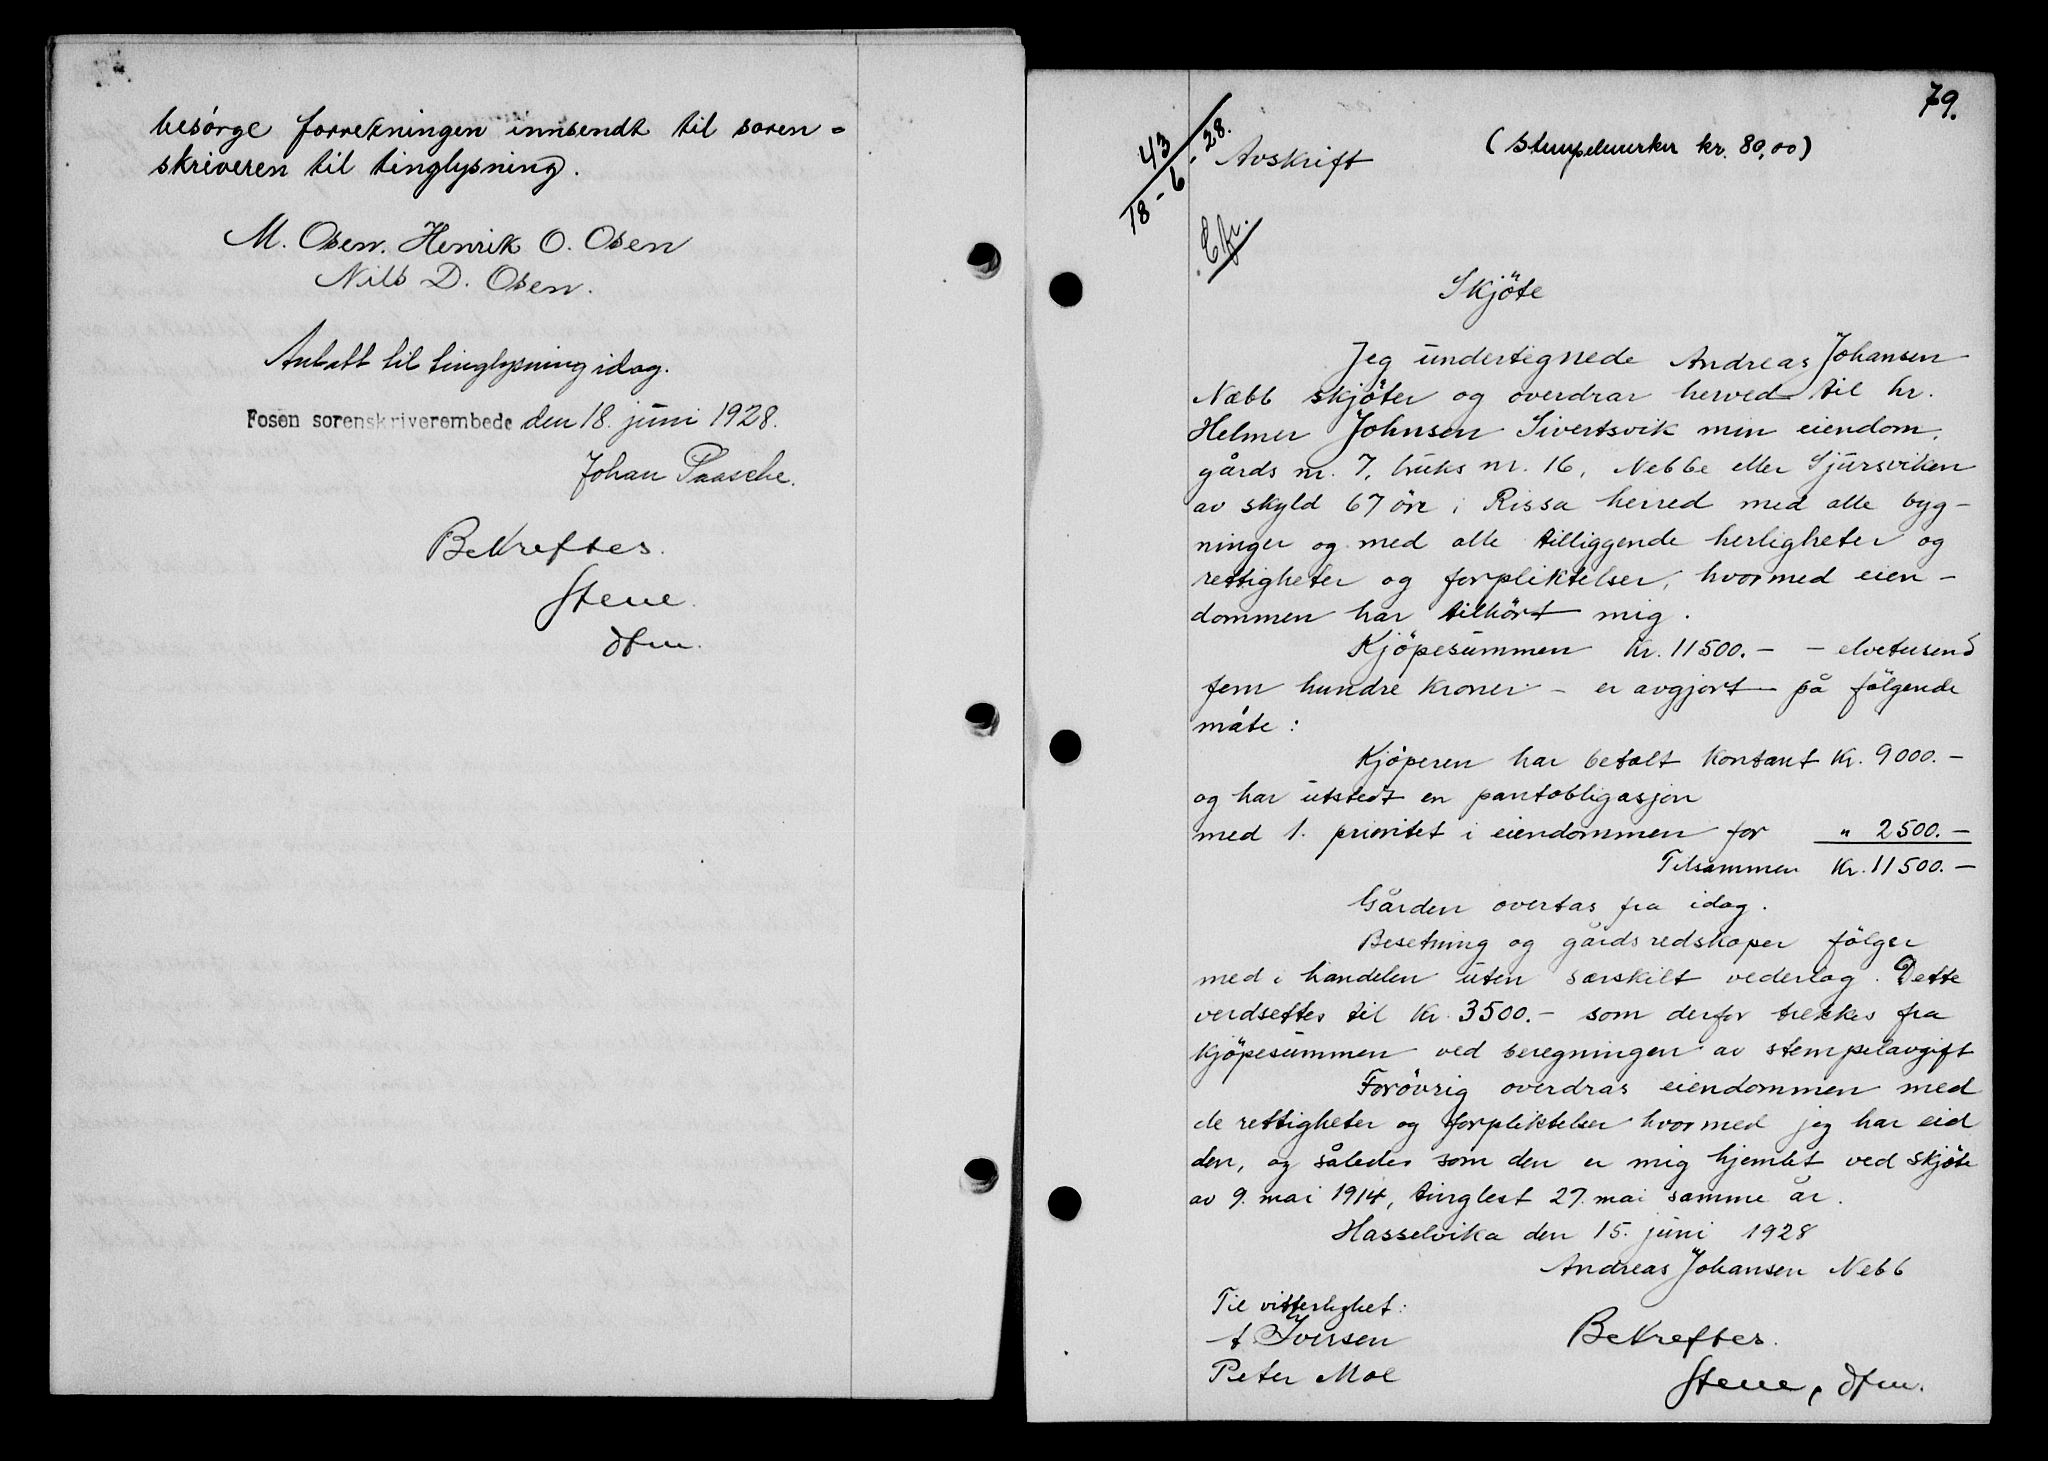 besörge forretningen innsendt til soren=
skriveren til tinglysning.
M. Osen. Henrik O. Osen
Nils D. Osen.
Antatt til tinglysning idag.
Fosen sorenskriverembede den 18. juni 1928.
Johan Paasche.
Bekreftes.
Stene.
dfm.
79.
43
18-6-28.
Avskrift (Stempelmerker kr. 80,00)
Skjöte
Jeg undertegnede Andreas Johansen
Næbb skjöter og overdrar herved til hr.
Helmer Johnsen Sivertsvik min eiendom,
gårds nr. 7, bruks nr. 16, Nebbe eller Sjursviken
av skyld 67 öre i Rissa herred med alle byg-
ninger og med alle tilliggende herligheter og
rettigheter og forpliktelser, hvormed eien-
dommen har tilhört mig.
Kjöpesummen Kr. 11500.- - elvetusend
fem hundre kroner - er avgjort på fölgende
måte:
Kjöperen har betalt kontant Kr. 9000.-
og har utstedt en pantobligasjon
med 1. prioritet i eiendommen for " 2500.-
Tilsammen Kr. 11500.-
Gården overtas fra idag.
Besetning og gårdsredskaper fölger
med i handelen uten særskilt vederlag. Dette
verdsettes til Kr. 3500.- som derfor trekkes fra
kjöpesummen ved beregningen av stempelavgift
Forövrig overdras eiendommen med
de rettigheter og forpliktelser hvormed jeg har eid
den, og således som den er mig hjemlet ved skjöte
av 9. mai 1914, tinglest 27. mai samme år.
Hasselvika den 15. juni 1928
Andreas Johansen Nebb
Til vitterlighet:
A Iversen
Peter Moe
Bekreftes.
Stene, dfm.